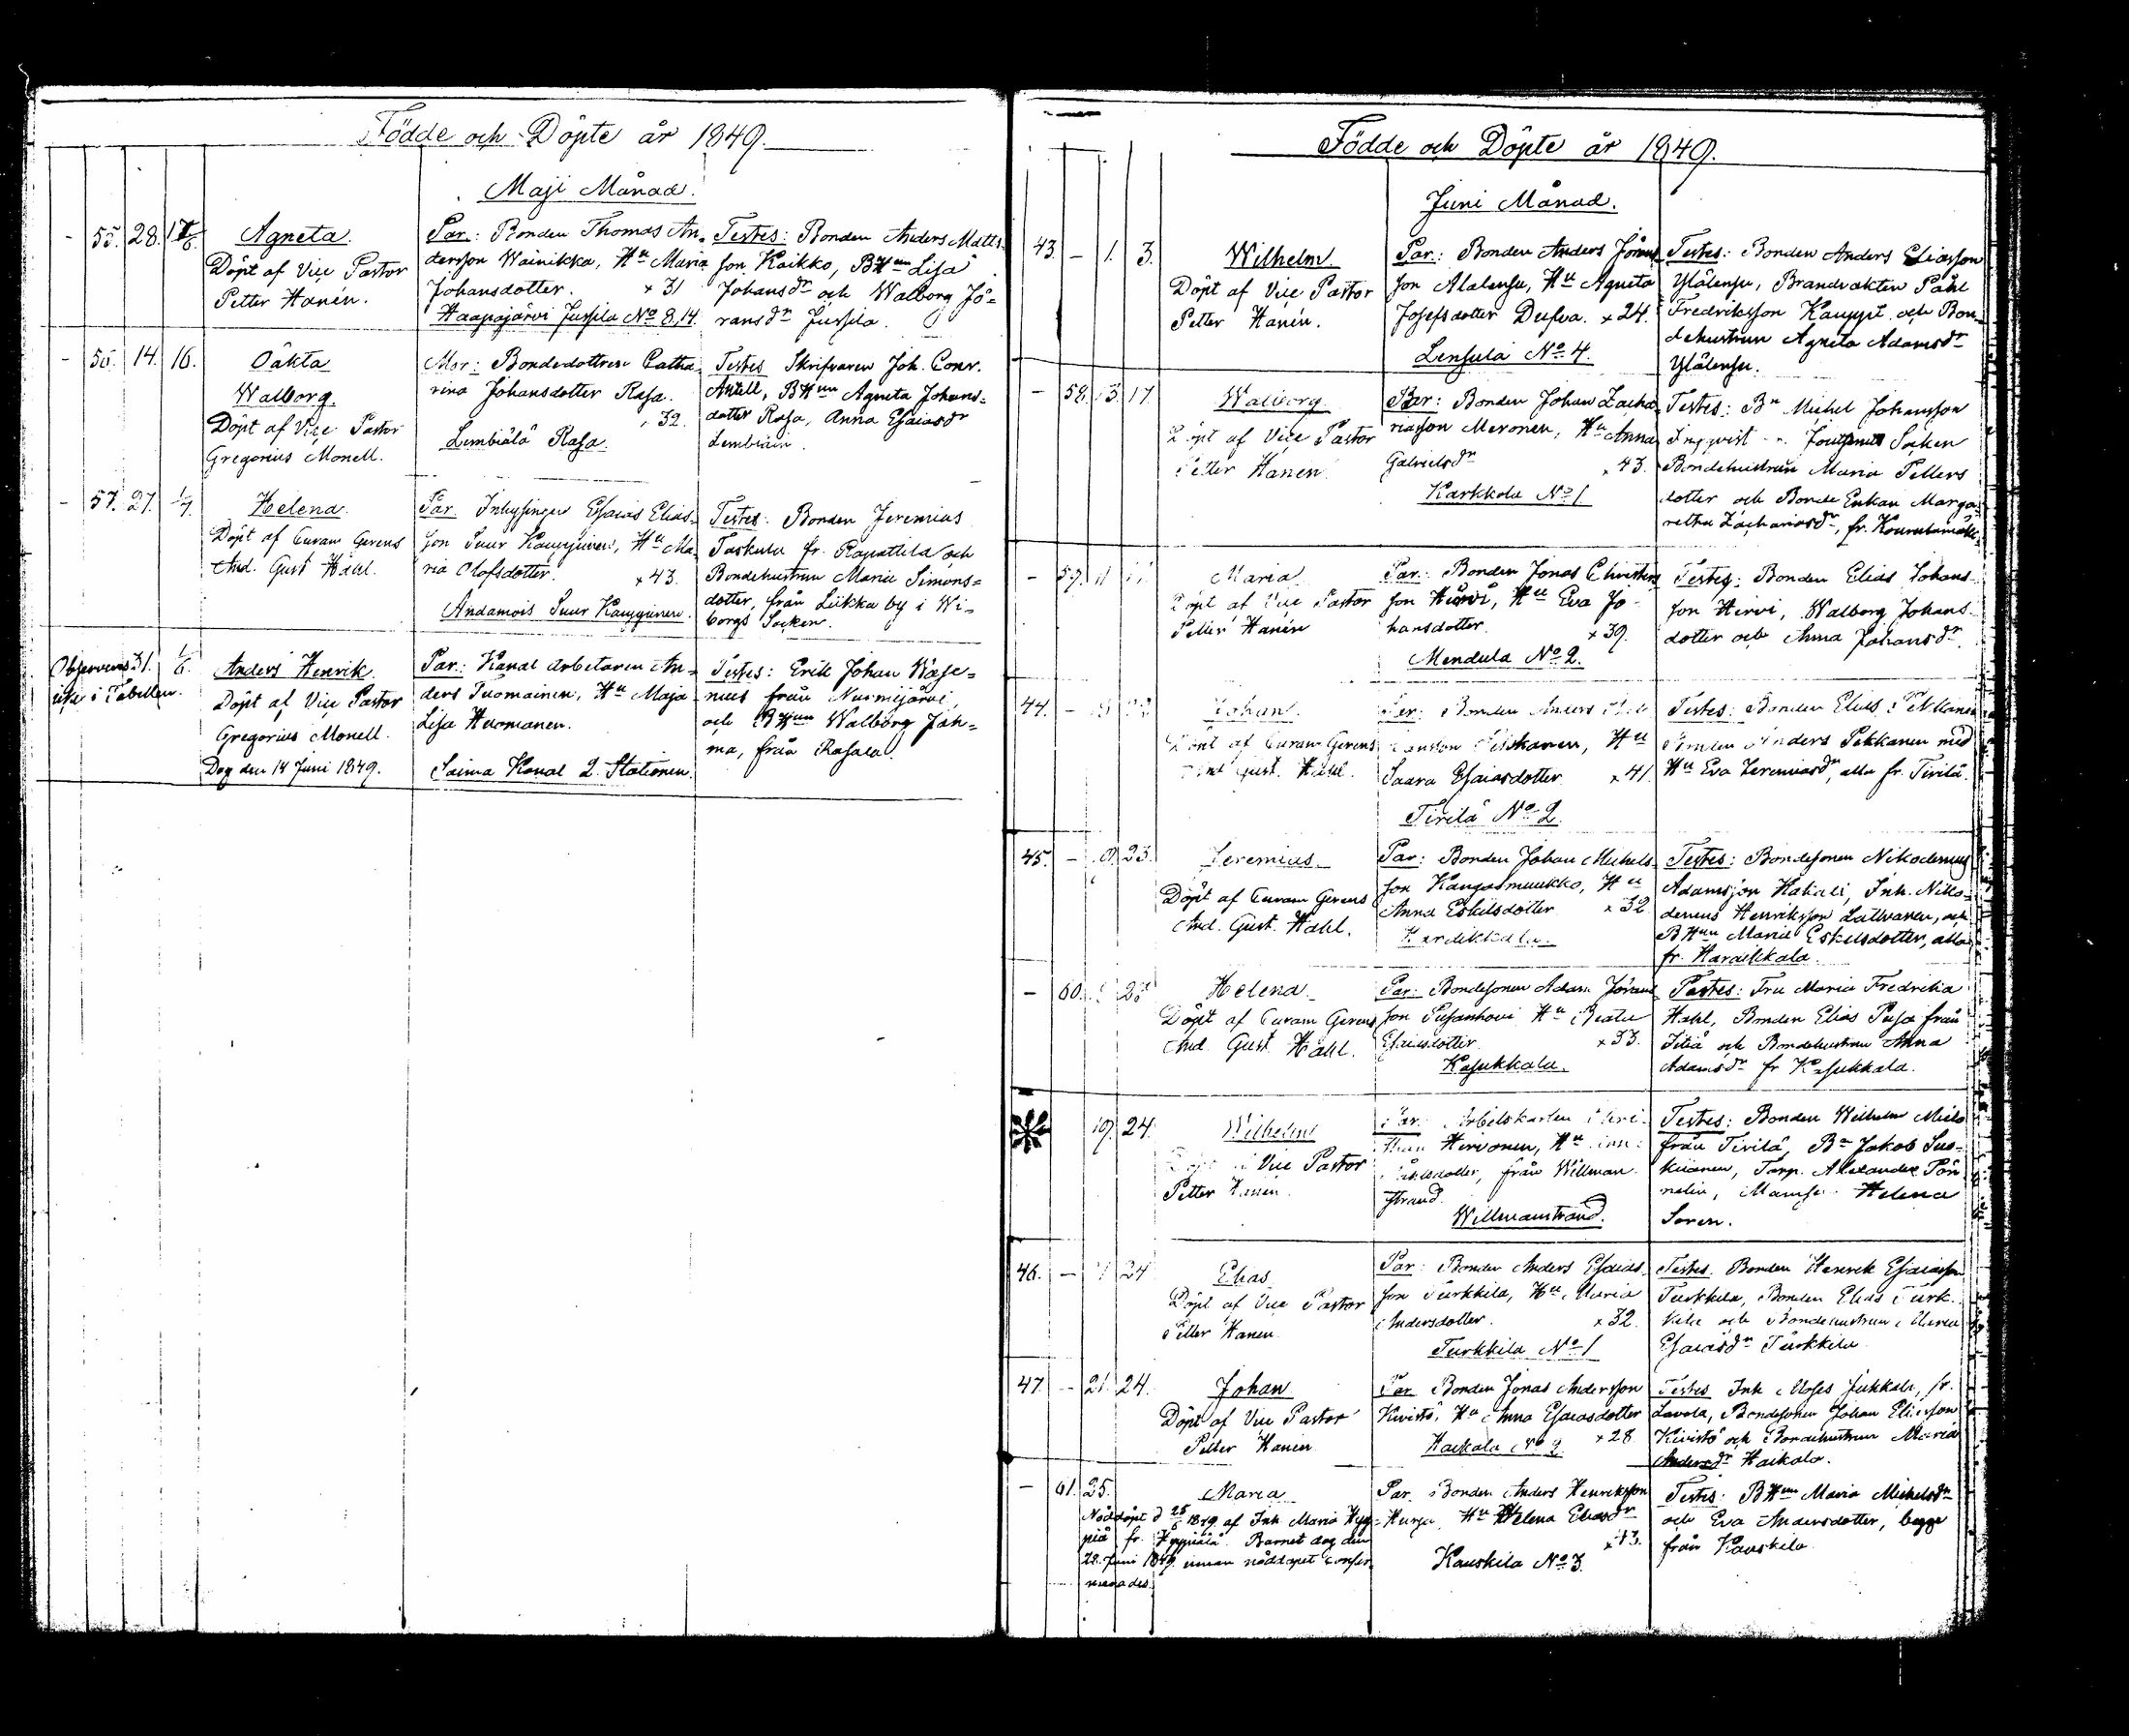 Födde och Döpte år 1849.
Maji Månad.
- 55. 28. Agneta.
Döpt af Vice Pastor
Petter Hanén.
Par: Bonden Thomas An-
dersson Wainikka, Hu Maria
Johansdotter. x 31
Haapajärvi Jussila No 8, 14.
Testes: Bonden Anders Matts-
son Kaikko, BHun Lisa
Johansdr och Walborg Jö-
ransdr Jussila.
- 56. 14. 16. Oäkta
Walborg.
Döpt af Vice Pastor
Gregorius Monell.
Mor: Bondedottren Catha-
rina Johansdotter Rasa.
32.
Lembiälä Rasa.
Testes Skrifvaren Joh. Conr.
Antell, BHun Agneta Johans-
dotter Rasa, Anna Esaiasdr
- 57. 27. 1/7 Helena.
Döpt af Curam Gerens
And. Gust. Hahl.
Par. Inhysingen Esaias Elias-
son Suur Kauppinen, Hu Ma-
ria Olofsdotter. x 43.
Andamois Suur Kauppinen.
Testes: Bonden Jeremias
Taskula fr. Rapattila och
Bondehustrun Maria Simons-
dotter, från Liikka by i Wi-
borgs Socken.
Observeras 31. 1/6. Anders Henrik
icke i Tabellen.
Döpt af Vice Pastor
Gregorius Monell.
Dog den 14 Juni 1849.
Par: Kanal Arbetaren An-
ders Tuomainen, Hu Maja
Lisa Huomanen.
Saima Kanal 2. Stationen.
Testes: Erik Johan Wase-
nius från Nurmijärvi
och BHun Walborg Jah-
ma, från Rasala.
Födde och Döpte år 1849.
Juni Månad.
43. - 1. 3. Wilhelm.
Döpt af Vice Pastor
Petter Hanén.
Par: Bonden Anders Jörans
son Alalensu, Hu Agneta
Josefsdotter Dufva. x 24.
Lensula No 4.
Testes: Bonden Anders Eliasson
Ylälensu, Brandvakten Påhl
Fredriksson Kauppi och Bon-
dehustrun Agneta Adamsdr
Ylälensu.
- 58. 13. 17. Walborg
Döpt af Vice Pastor
Petter Hanén
Par: Bonden Johan Zacha-
riasson Meronen, Hu Anna
Gabrielsdr x 43.
Karkkola No 1
Testes: Bn Michel Johansson
Socken
Bondehustrun Maria Petters
dotter och Bonde Enkan Marga-
retha Zachariasdr, fr.
- 59. Maria
Döpt af Vice Pastor
Petter Hanén
Par: Bonden Jonas Christers
son Hirvi, Hu Eva Jo-
hansdotter. x 39.
Mendula No 2.
Testes: Bonden Elias Johans
son Hirvi, Walborg Johans
dotter och Anna Johansdr.
44. - Johan.
Döpt af Curam Gerens
And. Gust. Hahl.
Par: Bonden Anders
Hu
Saara Esaiasdotter x 41.
Tirilä No 2.
Testes: Bonden Elias Pekkanen
Bonden Anders Pekkanen med
Hu Eva Jeremiasdr, alla fr. Tirilä.
45. - 23. Jeremias
Döpt af Curam Gerens
And. Gust. Hahl.
Par: Bonden Johan Michels-
son Kangasmuukko, Hu
Anna Eskilsdotter x 32
Hardikkala.
Testes: Bondesonen Nikodemus
Adamsson Hakali, Inh. Niko-
demus Henriksson Lattvanen, och
BHun Maria Eskilsdotter, alla
fr. Haraikkala.
- 60. Helena
Döpt af Curam Gerens
And. Gust Hahl.
Par: Bondesonen Adam Jörans
son Pusanhovi Hu Beata
Esaiasdotter. x 33.
Kasukkala.
Testes: Fru Maria Fredrika
Hahl, Bonden Elias Pusa från
Itiä och Bondehustrun Anna
Adamsdr fr Kasukkala.
19. 24. Wilhelm
Döpt af Vice Pastor
Petter Hanén.
Par: Arbetskarlen
Hirvonen, Hu
från Willman
strand.
Willmanstrand.
Testes: Bonden Wilhelm
från Tirilä, Bn Jakob Suo-
Torp. Alexander
Helena
46. - 24 Elias
Döpt af Vice Pastor
Petter Hanén
Par: Bonden Anders Esaias
son Turkkila, Hu Maria
Andersdotter. x 32.
Turkkila No 1
Testes. Bonden Henrik Esaiasson
Turkkila, Bonden Elias Turk-
kila och Bondehustrun Maria
Esaiasdr Turkkila
47. - 21. 24. Johan
Döpt af Vice Pastor
Petter Hanén
Par Bonden Jonas Andersson
Kivistö, Hu Anna Esaiasdotter
x 28
Haikala No 2
Testes Inh Moses Jukkala, fr.
Lavola, Bondesonen Johan Eliasson
Kivistö och Bondehustrun Maria
Andersdr Haikala.
- 61. 25. Maria
Nöddöpt d 25/6 1849 af Inh Maria Hyp-
piä fr. Hyppiälä. Barnet dog den
28. Juni 1849 innan nöddopet confir-
merades.
Par. Bonden Anders Henriksson
Hurja, Hu Helena Eliasdr
x 43.
Kauskila No 3.
Testes: BHun Maria Michelsdr
och Eva Andersdotter, begge
från Kauskila